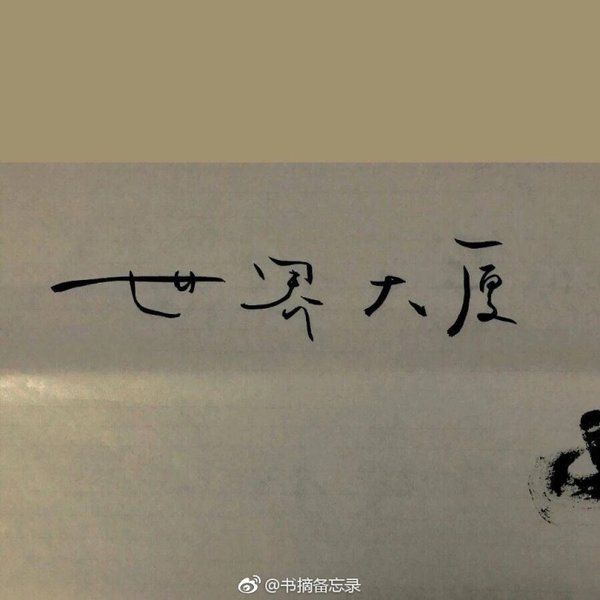 世界大厦
@书摘备忘录